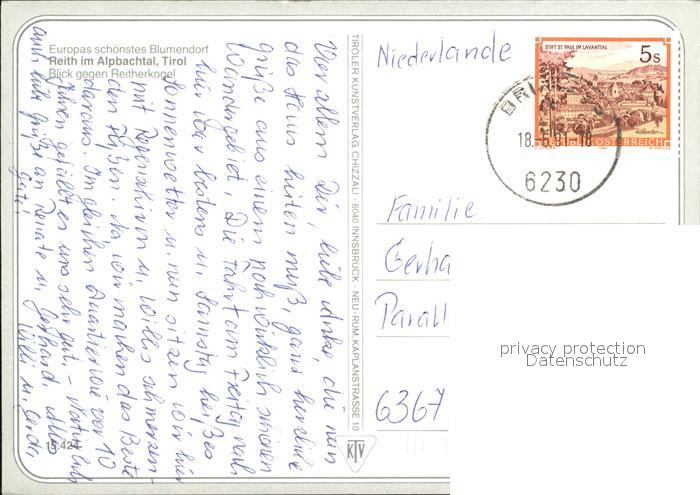 Europas schönstes Blumendorf
Reith im Alpbachtal, Tirol
Blick gegen Reitherkogel
Vor allem Dir, liebe Anke, die nun
das Haus hüten muß, ganz herzliche
Grüße aus einem noch wirklich schönen
Wandergebiet. Die Fahrt am Freitag nach
hier war bestens u. Samstag heißes
Sonnenwetter u. nun sitzen wir hier
mit Regenschirm u. Willis schmerzen-
den Füßen. Na wir machen das Beste
daraus. Im gleichen Quartier wie vor 10
Jahren gefällt es uns sehr gut. -
auch liebe Grüße an Renate u. Gerhard.
Willi u. Gerda
15.424
TIROLER KUNSTVERLAG CHIZZALI · 6040 INNSBRUCK - NEU-RUM, KAPLANSTRASSE 10
KTV
Niederlande
STIFT ST. PAUL IM LAVANTTAL
5s
REPUBLIK ÖSTERREICH
6230
Familie
Gerha
Parall
6367
privacy protection
Datenschutz